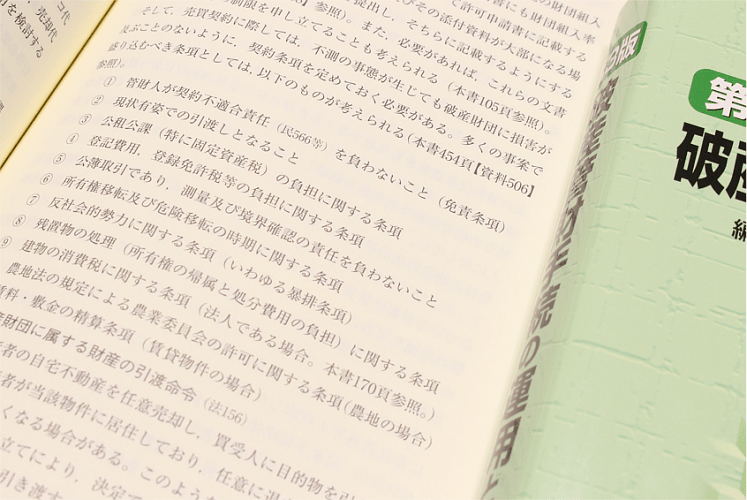 コ代
売却代
を検討する
の財団組入
書にも財団組入率
て許可申請書に記載する
制限を申し立てることも考えられる（本書105頁参照）。
提出し，そちらに記載するようにする
びその添付資料が大部になる場
参照）。また，必要があれば，これらの文書
そして，売買契約に際しては，不測の事態が生じても破産財団に損害が
及ぶことのないように，契約条項を定めておく必要がある。多くの事案で
盛り込むべき条項としては，以下のものが考えられる（本書454頁【資料506】
参照）。
① 管財人が契約不適合責任（民566等）を負わないこと（免責条項）
② 現状有姿での引渡しとなること
③ 公租公課（特に固定資産税）の負担に関する条項
④ 登記費用，登録免許税等の負担に関する条項
⑤ 公簿取引であり，測量及び境界確認の責任を負わないこと
⑥ 所有権移転及び危険移転の時期に関する条項
⑦ 反社会的勢力に関する条項（いわゆる暴排条項）
⑧ 残置物の処理（所有権の帰属と処分費用の負担）に関する条項
⑨ 建物の消費税に関する条項（法人である場合。本書170頁参照。）
農地法の規定による農業委員会の許可に関する条項（農地の場合）
賃料・敷金の精算条項（賃貸物件の場合）
財団に属する財産の引渡命令（法156）
者の自宅不動産を任意売却し，買受人に目的物を引
者が当該物件に居住しており，任意に退
くなる場合がある。このような
立てにより，決定で
引き渡す
版
破産管財手続の運用と
第
破産
編